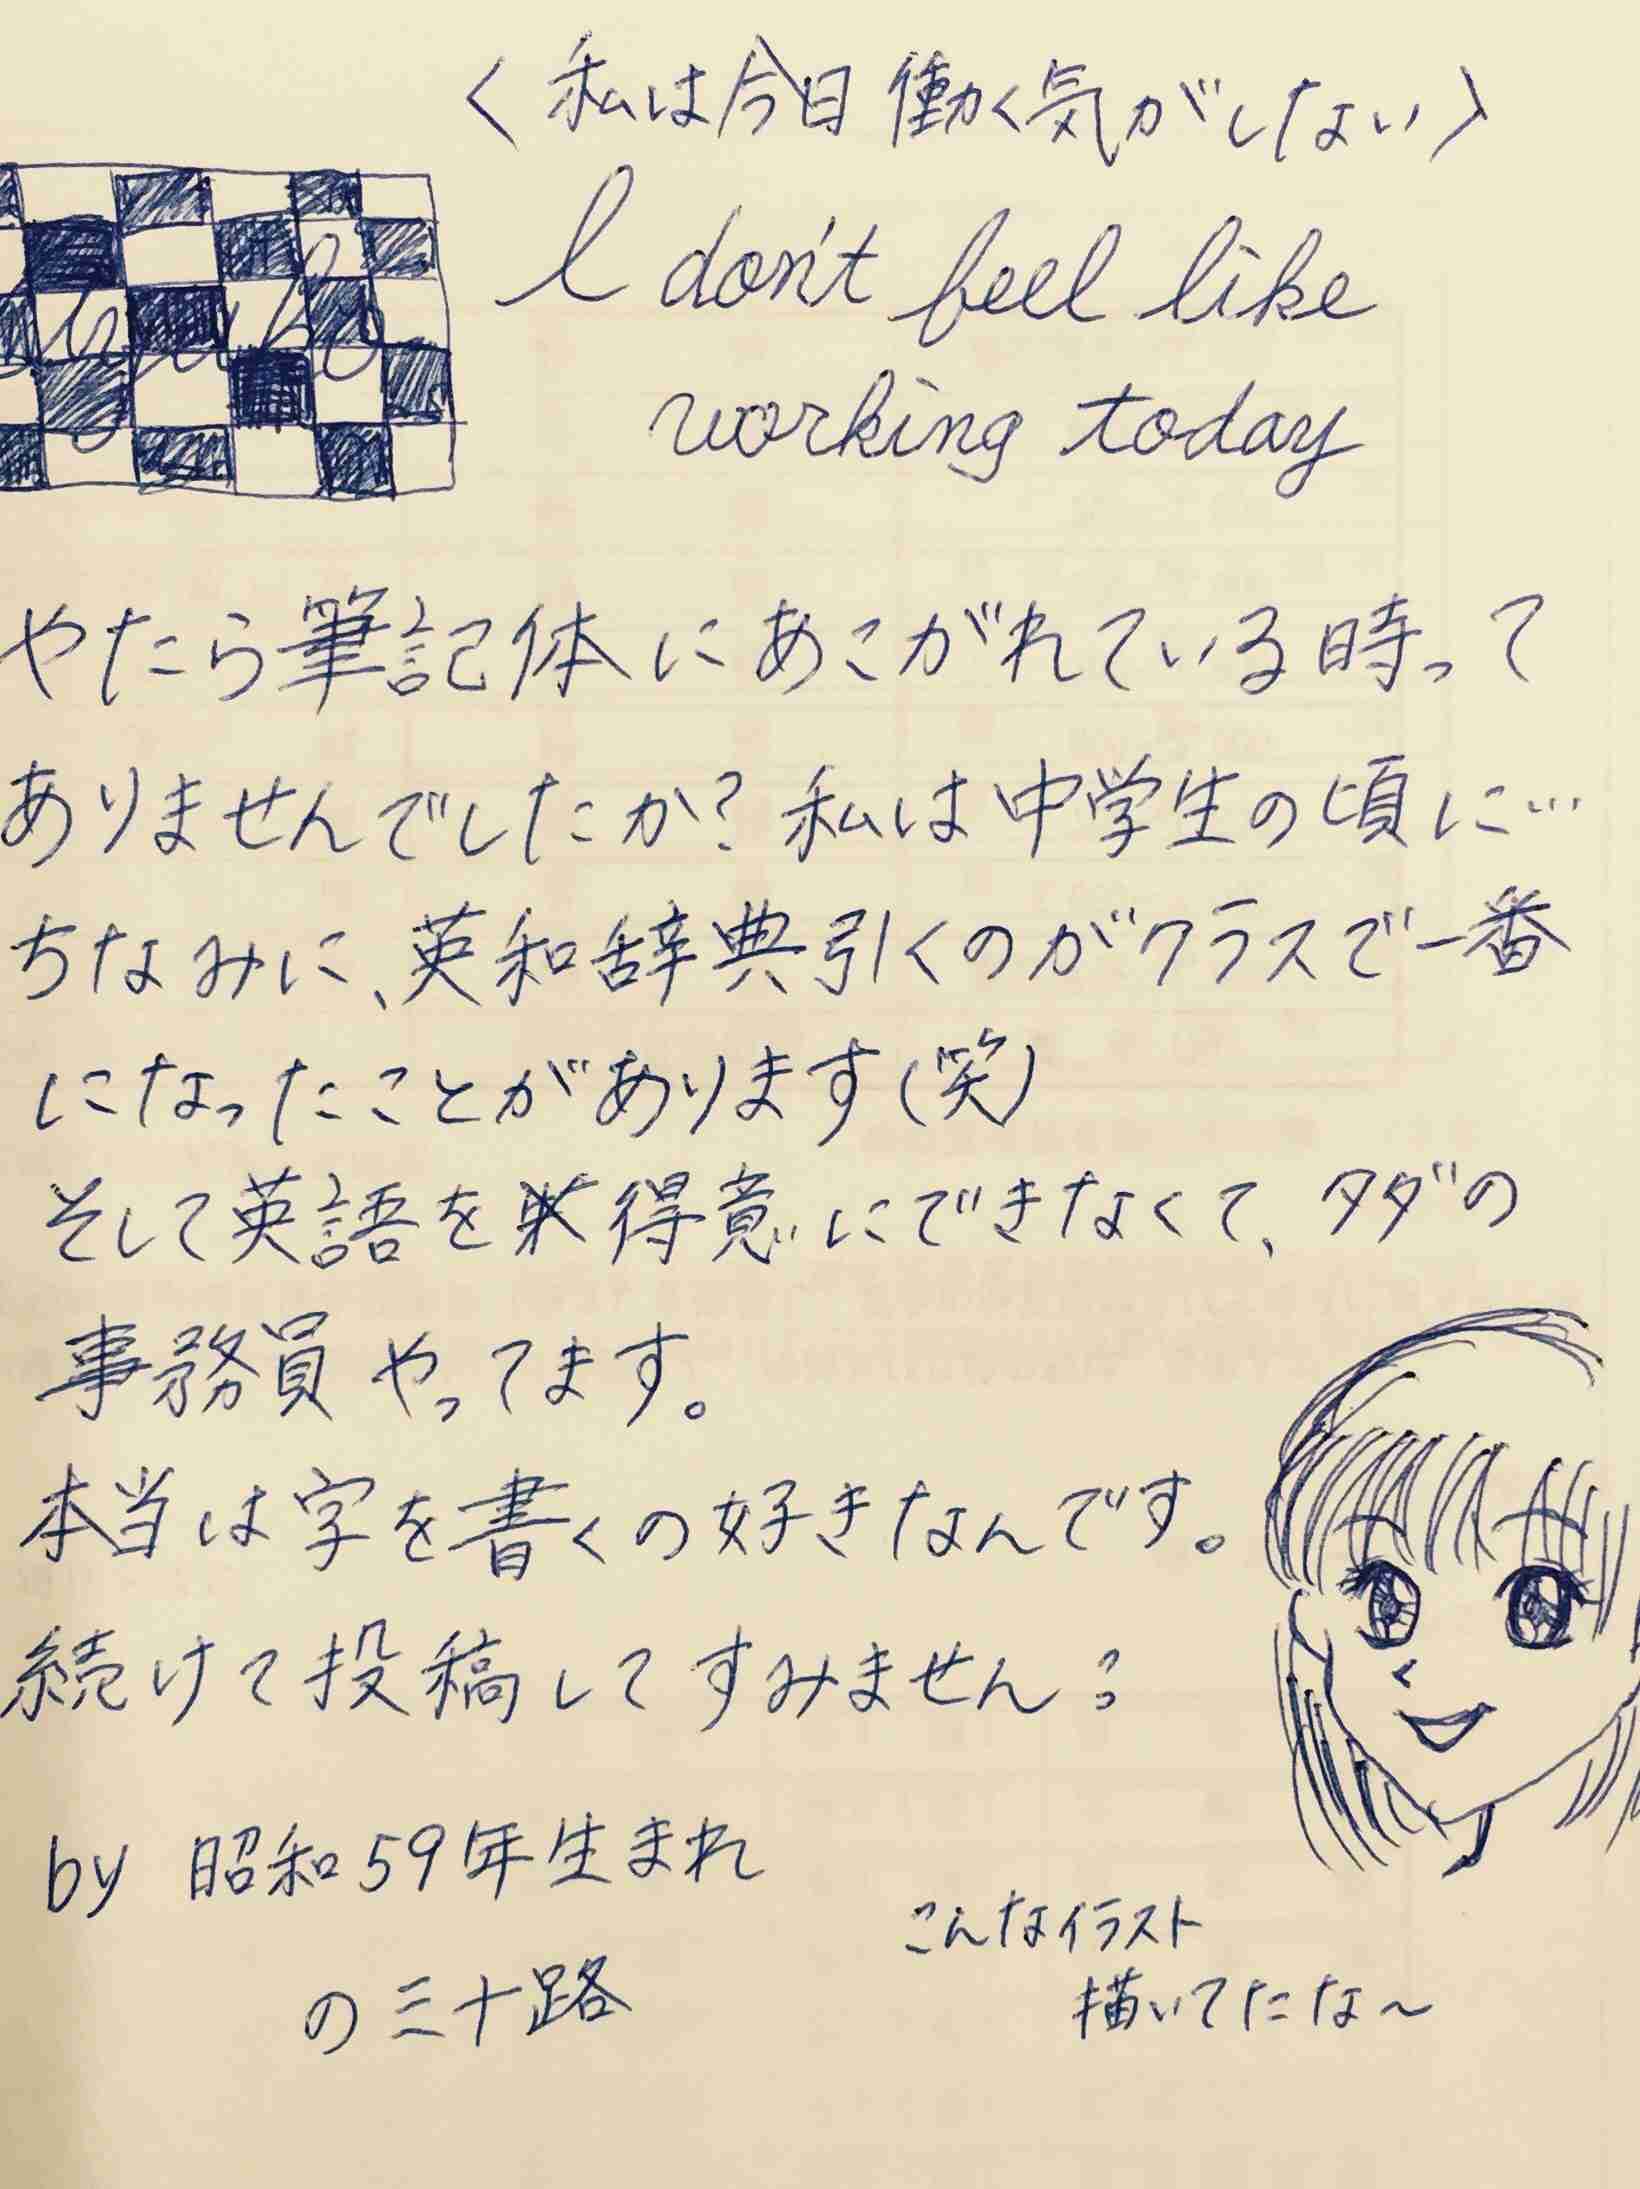 〈私は今日働く気がしない〉
I don't feel like
working today
やたら筆記体にあこがれている時って
ありませんでしたか？私は中学生の頃に…
ちなみに、英和辞典引くのがクラスで一番
になったことがあります(笑)
そして英語を得意にできなくて、タダの
事務員やってます。
本当は字を書くの好きなんです。
続けて投稿してすみません
by 昭和59年生まれ
の三十路
こんなイラスト
描いてたな〜